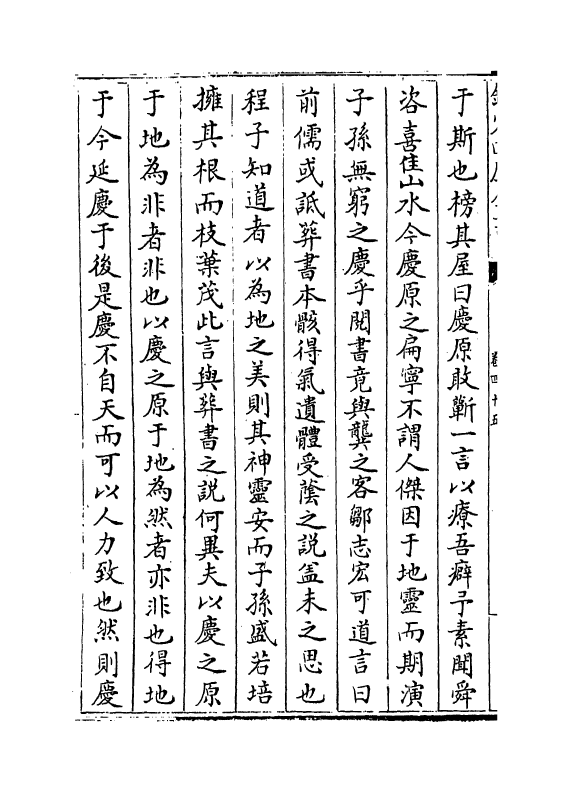 于斯也榜其屋曰慶原敢蘄一言以療吾癖予素聞舜
咨喜佳山水今慶原之扁寧不謂人傑因于地靈而期演
子孫無窮之慶乎閱書竟與龔之客鄒志宏可道言曰
前儒或詆葬書本骸得氣遺體受蔭之說盖未之思也
程子知道者以為地之美則其神靈安而子孫盛若培
擁其根而枝葉茂此言與葬書之說何異夫以慶之原
于地為非者非也以慶之原于地為然者亦非也得地
于今延慶于後是慶不自天而可以人力致也然則慶
卷四十五